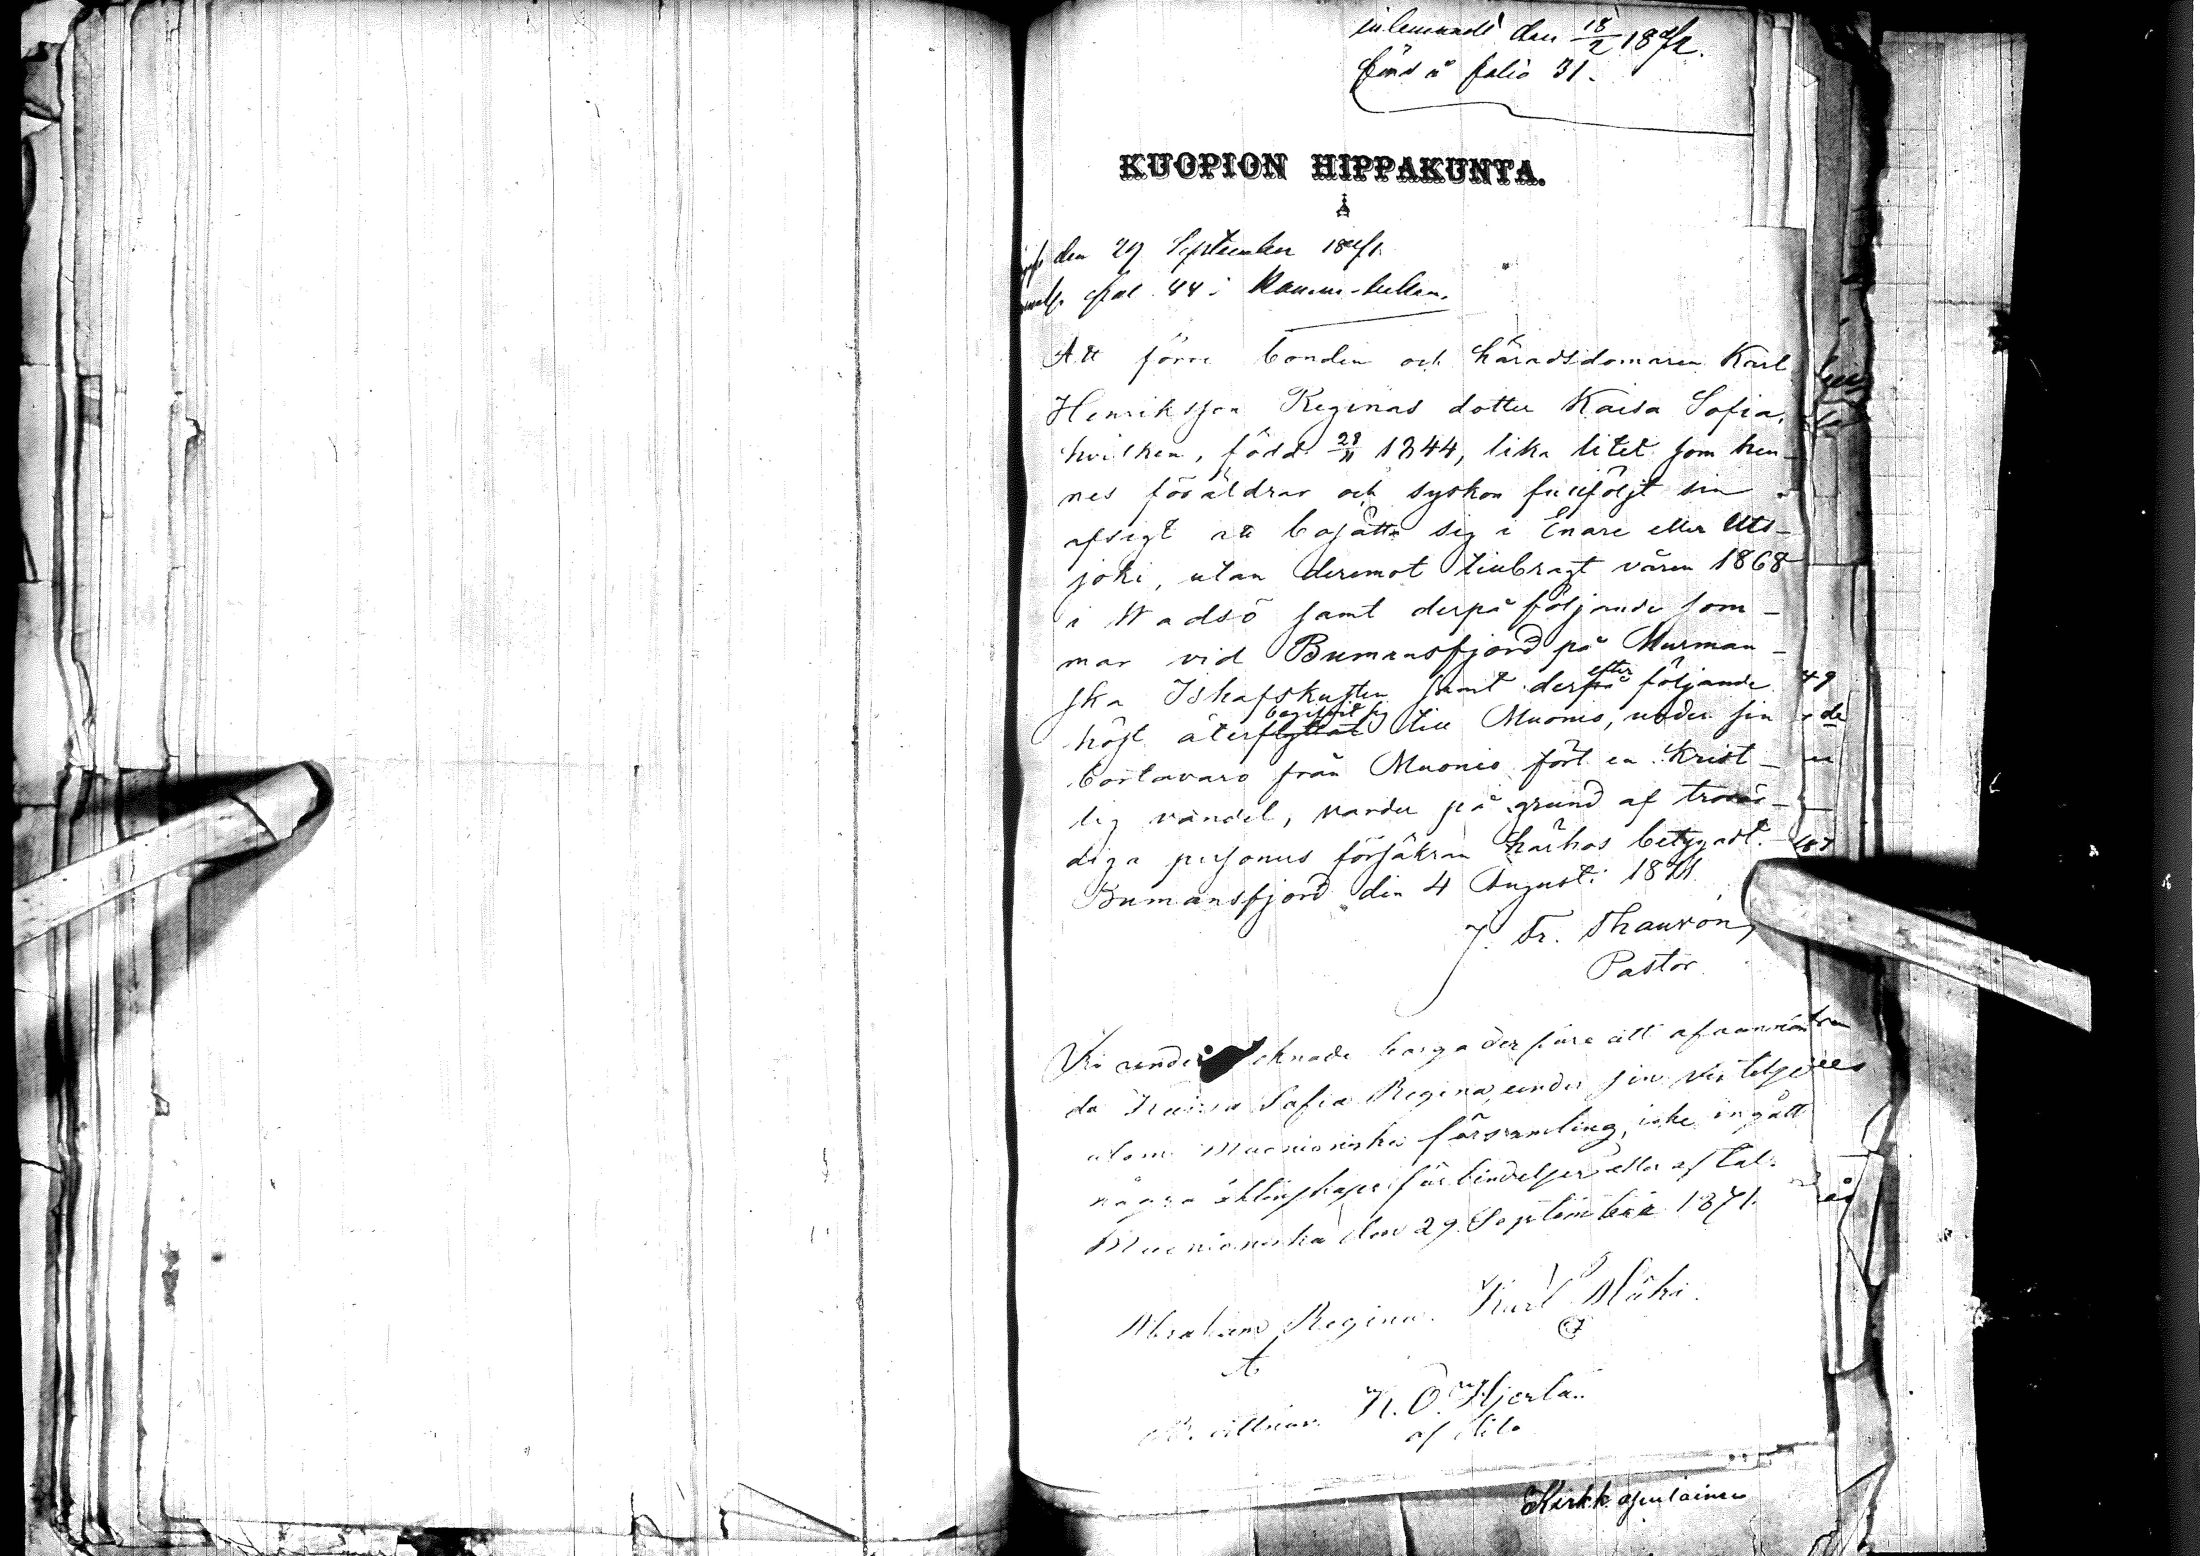 den 18/2 1872.
förd å folio 31.
KUOPION HIPPAKUNTA.
den 29 September 1871.
fol. 44 i
Att förre bonden och häradsdomaren Karl
Henriksson Reginas dotter Kaisa Sofia,
hvilken, född 28/11 1844, lika litet som hen-
nes föräldrar och syskon fullföljt sin
afsigt att bosätta sig i Enare eller Uts-
joki, utan deremot tillbragt våren 1868
i Wadsö samt derpå följande som-
mar vid Bumansfjord på Murman-
ska Ishafskusten samt derefter följande
höst återbegifvit sig till Muonio, under sin
bortavaro från Muonio fört en Krist-
lig vandel, varder på grund af trovär-
diga persones försäkran härhos betygadt.
Bumansfjord den 4 Augusti 1871.
J. Fr. Thauvón,
Pastor
Vi undertecknade borga derföre att
da Kaisa Sofia Regina, under sin vistelse
utom Muonioniska församling, icke ingått
några äktenskapsförbindelser eller aftal.
Muonioniska den 29 September 1871.
Abraham Regina. Karl Mäki.
K. O. Hjerta..